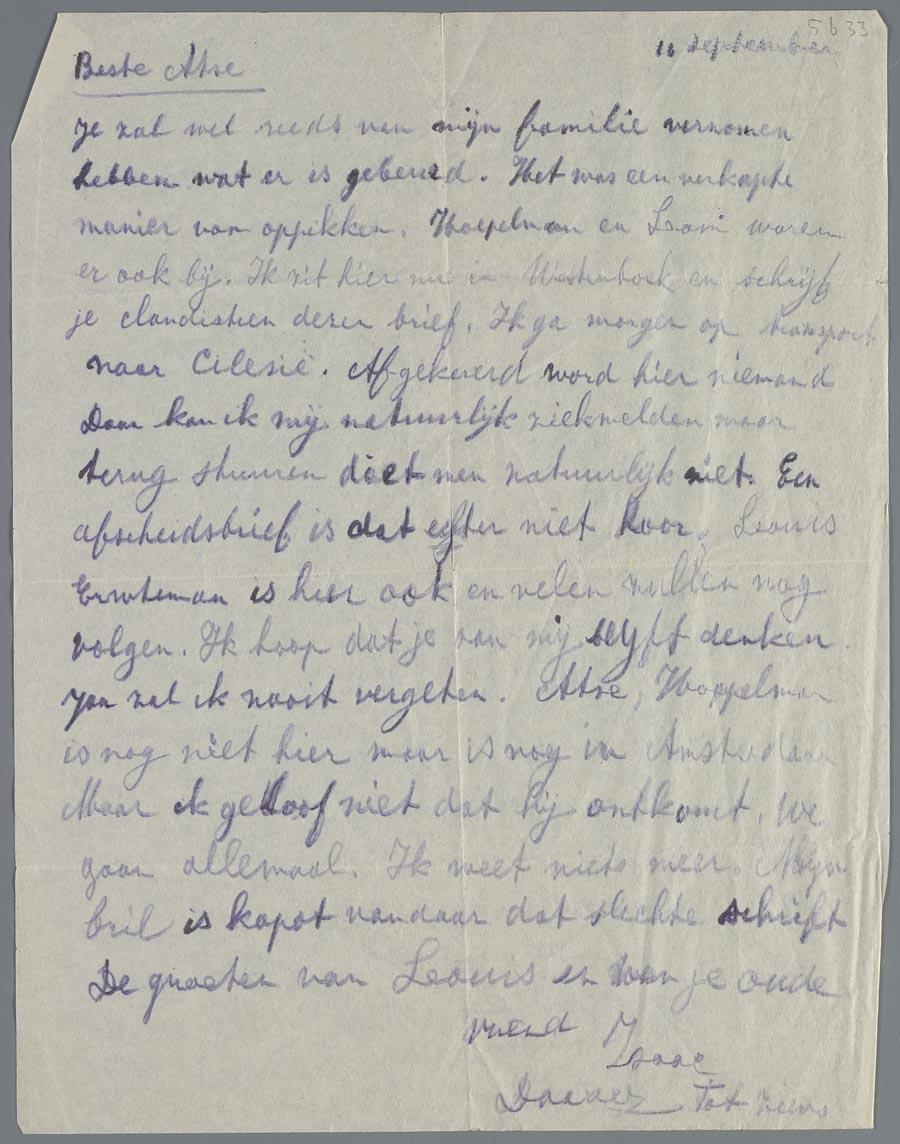 5633
11 september
Beste Atse
Je zal wel reeds van mijn familie vernomen
hebben wat er is gebeurd. Het was een verkapte
manier van oppikken. Hoepelman en Leoni waren
er ook bij. Ik zit hier nu in Westenboek en schrijf
je clandistien dezen brief. Ik ga morgen op transport
naar Cilesië. Afgekeurd word hier niemand
Daar kan ik mij natuurlijk ziekmelden maar
terug sturen doet men natuurlijk niet. Een
afscheidsbrief is dat egter niet hoor. Leouis
Erwteman is hier ook en velen zullen nog
volgen. Ik hoop dat je van mij blyft denken
jou zal ik nooit vergeten. Atse, Hoepelman
is nog niet hier maar is nog in Amsterdam
Maar ik geloof niet dat hij ontkomt. We
gaan allemaal. Ik weet niets meer. Mijn
bril is kapot vandaar dat slechte schrift
De groeten van Leouis en van je oude
vriend Isaac
Tot ziens